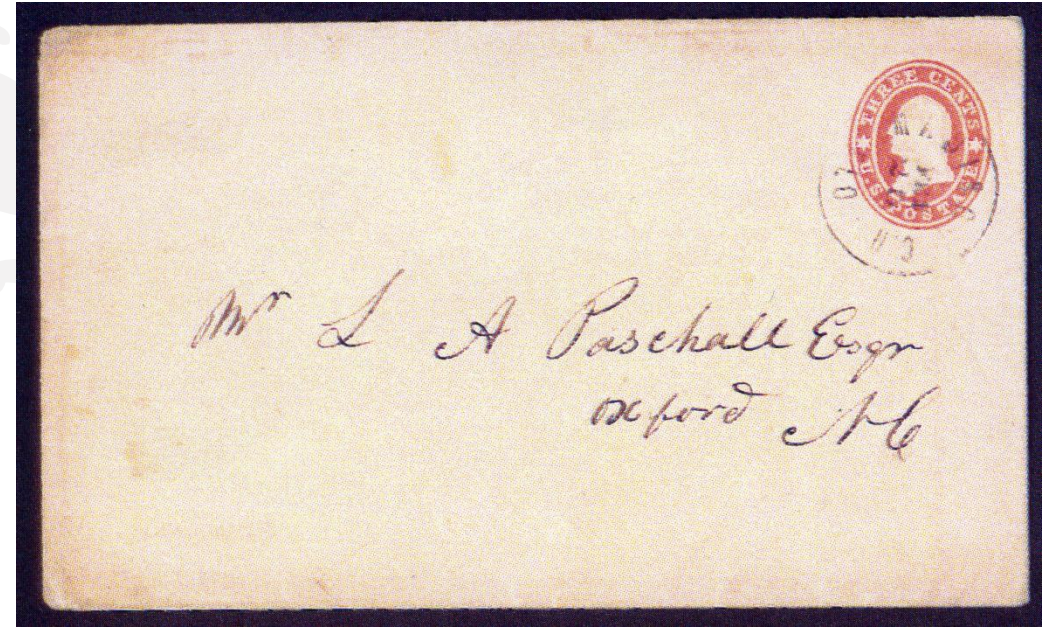 THREE CENTS
U.S. POSTAGE
Mr L A Paschall Esqr
oxford NC